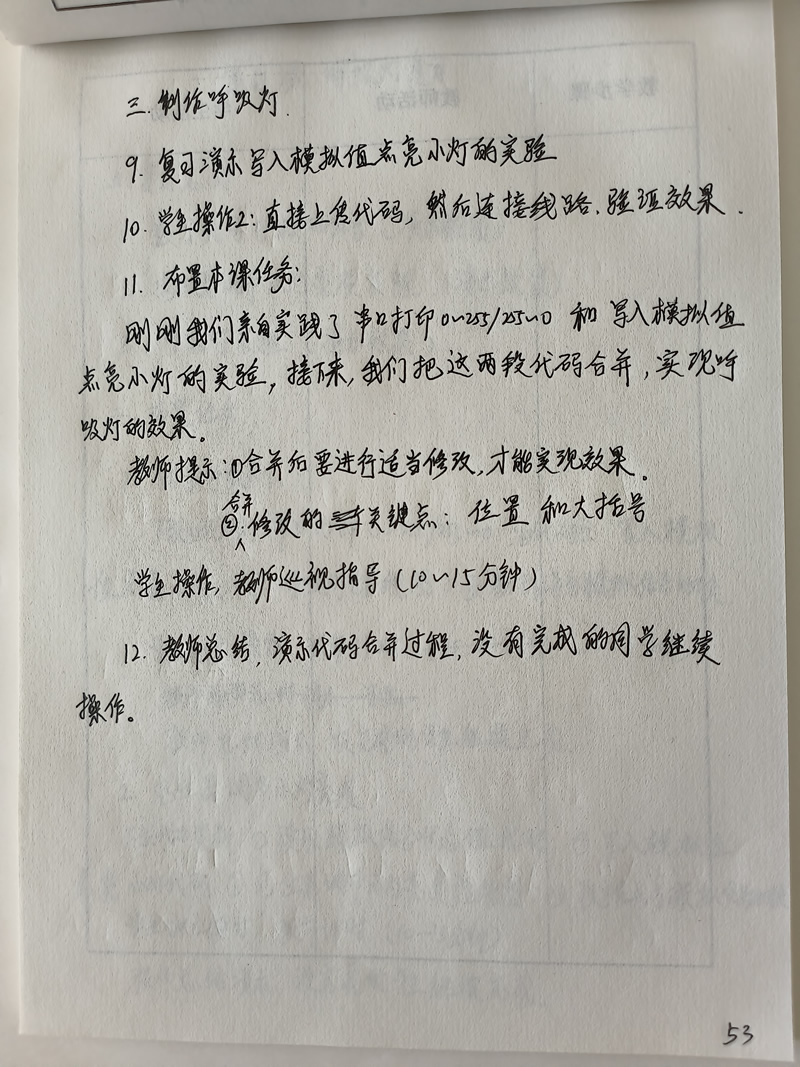 三.制作呼吸灯.
9. 复习演示写入模拟值点亮小灯的实验
10. 学生操作2:直接上传代码,然后连接线路、验证效果.
11. 布置本课任务:
刚刚我们亲自实践了 串口打印0~255/255~0 和 写入模拟值
点亮小灯的实验,接下来,我们把这两段代码合并,实现呼
吸灯的效果。
教师提示:①合并后要进行适当修改,才能实现效果。
②.合并修改的关键点:位置 和大括号
学生操作,教师巡视指导(10~15分钟)
12. 教师总结,演示代码合并过程,没有完成的同学继续
操作。
53